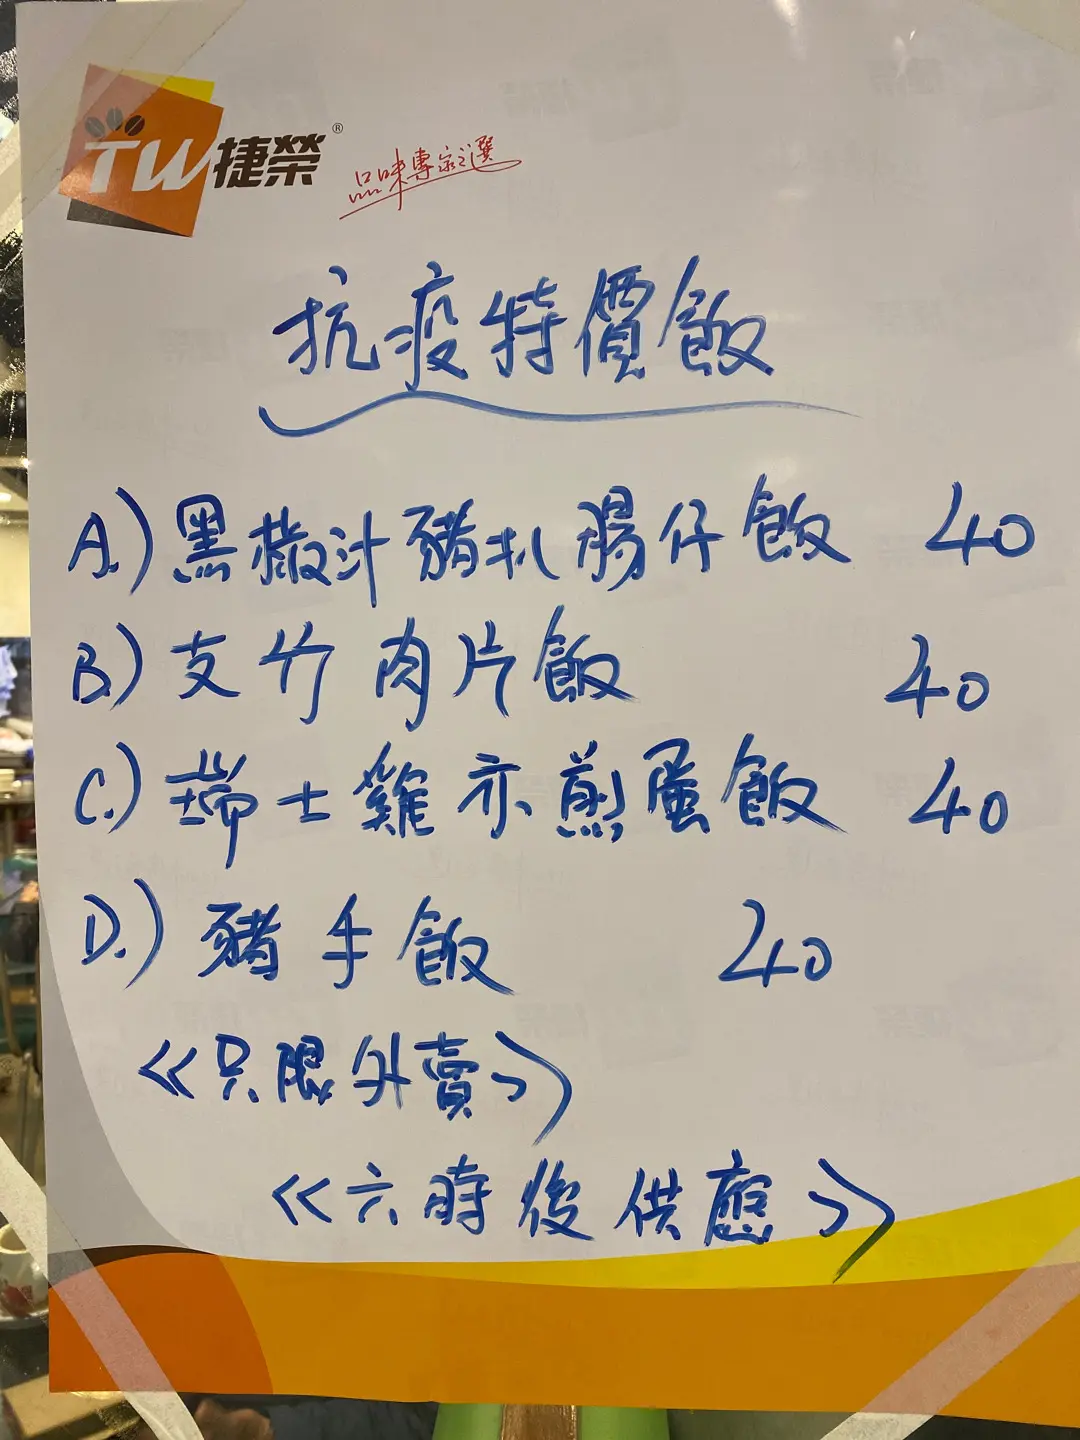 TW捷榮® 品味專家之選
抗疫特價飯
A.) 黑撒汁豬扒腸仔飯 40
B.) 支竹肉片飯 40
C.) 瑞士雞亦煎蛋飯 40
D.) 豬手飯 40
<<只限外賣>>
<<六時後供應>>